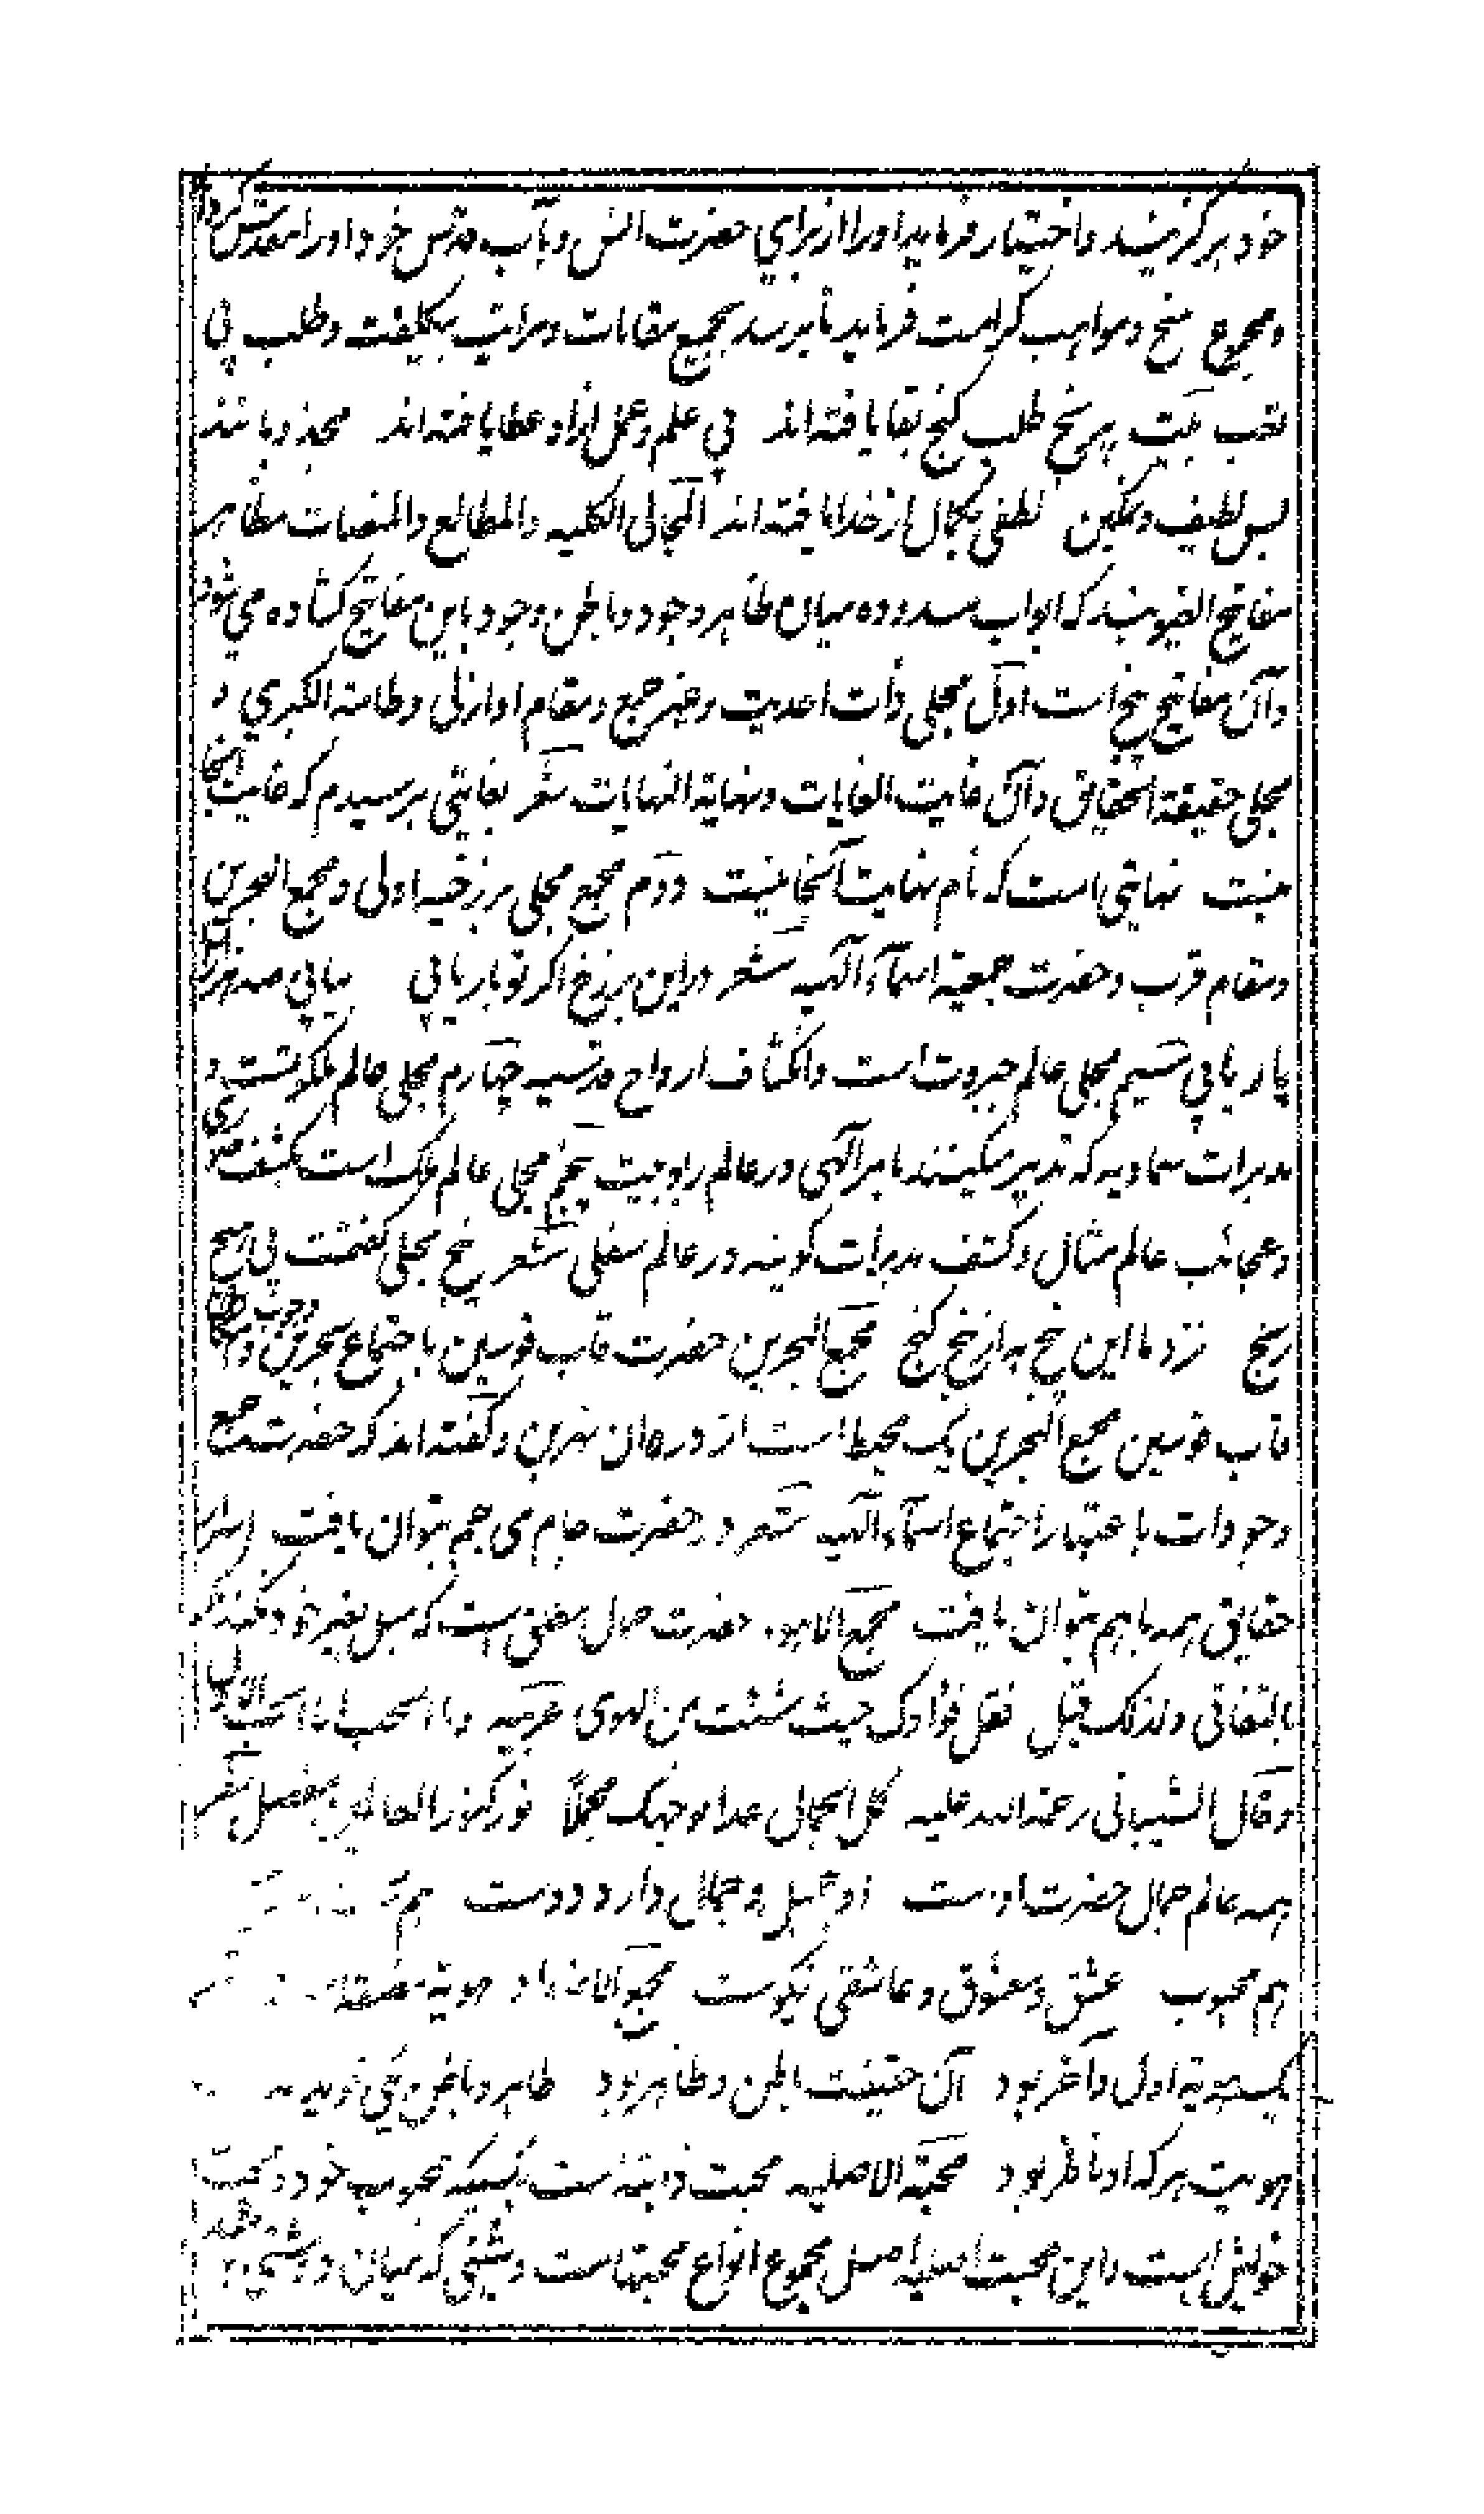 خود برگزیند و اختیار فرماید او را از برای حضرت انس و بآب قدس خود او را مقدس گرداند
و مجموع منح و مواهب کرامت فرماید تا برسد بجمیع مقامات و مراتب بیکلفت و طلب بی
تعب بیت بی رنج طلب گنج بقا یافته اند بی علم و عمل از او عطا یافته اند مجذوبانند
بس لطیف و تمکین لطفی بکمال از خدا یافته اند المجالی الکلیه و المطالع و المنصات مظاهر
مفاتیح الغیوبند که ابواب مسدوده میان ظاهر وجود و باطن وجود باین مفاتیح گشاده می شود
و آن مفاتیح پنج است اول مجلی ذات احدیت و عین جمع و مقام او ادنی و طامة الکبری و
مجلی حقیقة الحقایق و آن غایت الغایات و نهایة النهایات شعر بغایتی برسیدم که غایت آنجا
نیست نهایتی است که نام نهایت آنجا نیست دوم مجمع مجلی برزخیه اولی و مجمع البحرین
و مقام قرب و حضرت جمعیة اسماء الهیه شعر در این برزخ اگر تو بار یابی بیابی صد هزاران
یار یابی سیم مجلی عالم جبروت است و انکشاف ارواح قدسیه چهارم مجلی عالم ملکوتست و
مدبرات سماویه که تدبیر میکنند بامر الهی در عالم ربوبیت پنجم مجلی عالم ملک است بکشف صوری
و عجائب عالم مثال و کشف مدبرات کونیه در عالم سفلی شعر پنج مجلی گفتمت بی هیچ
رنج نزد ما این پنج به از پنج گنج مجمع البحرین حضرت قاب قوسین باجتماع بحرین وجوب و امکان
قاب قوسین مجمع البحرین یک محیط است از ورهان نهرین و گفته اند که حضرت جمع
وجودات باعتبار اجتماع اسماء الهیه شعر در حضرت جام می جم بتوان یافت اسرار
حقایق همه با هم بتوان یافت مجمع الاهواء حضرت جمال مطلق است که میل بغیر خود نکند مگر
باتفاقی و لذلک قیل نقل فؤادک حیث شئت من الهوی عربیه و ما الحب الا للحبیب الاول
و قال الشیبانی رحمة الله علیه کل الجمال غدا لوجهک مجملا نور کنور العالمین مفصل شعر
همه عالم جمال حضرت اوست او جمیل و جمال دارد دوست هم
هم محبوب عشق و معشوق و عاشقی نیکوست مجمع الاضداد هویة مطلقه
یک هویة اول و آخر بود آن حقیقت باطن و ظاهر بود ظاهر و باطن یکی
هویت هر که او ناظر بود محبة الاصلیه محبت ذاتیه است محبوب خود و محب
خویش است و این محبت اصلیه اصل مجموع انواع محبتهاست و که میان دو